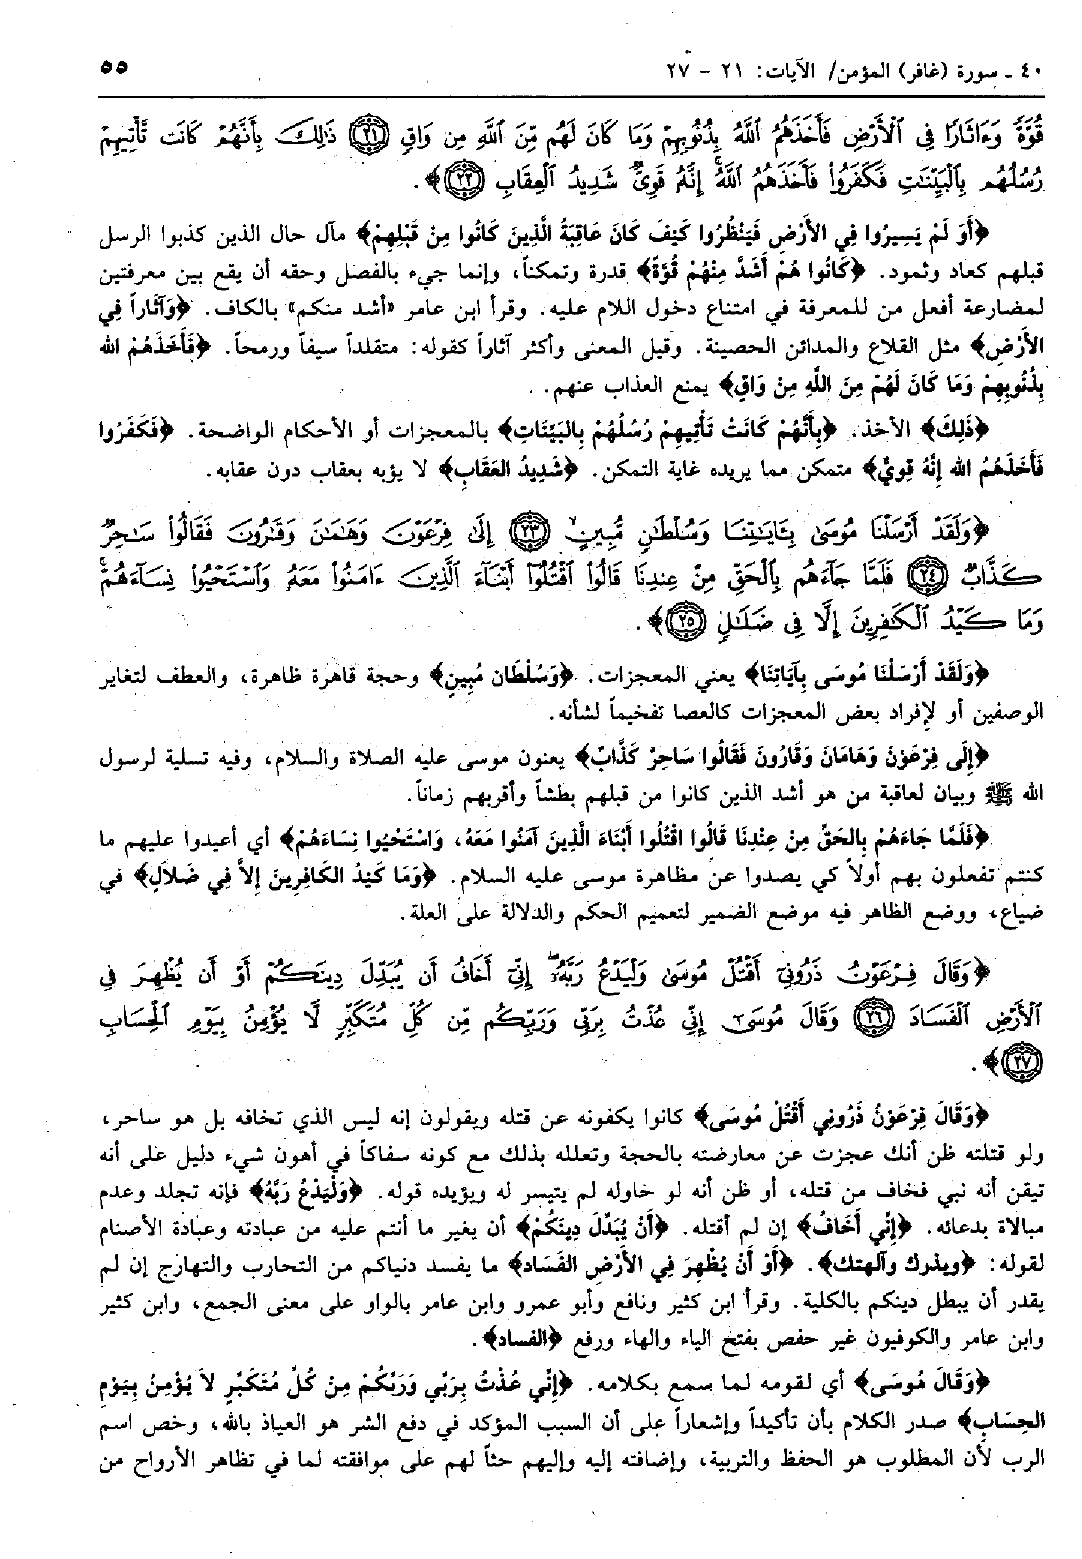 ٤٠ ـ سورة (غافر) المؤمن/ الآيات: ٢١ - ٢٧
٥٥
قُوَّةً وَءَاثَارًا فِي ٱلْأَرْضِ فَأَخَذَهُمُ ٱللَّهُ بِذُنُوبِهِمْ وَمَا كَانَ لَهُم مِّنَ ٱللَّهِ مِن وَاقٍ ﴿٢١﴾ ذَٰلِكَ بِأَنَّهُمْ كَانَت تَّأْتِيهِمْ
رُسُلُهُم بِٱلْبَيِّنَٰتِ فَكَفَرُوا۟ فَأَخَذَهُمُ ٱللَّهُ إِنَّهُۥ قَوِىٌّ شَدِيدُ ٱلْعِقَابِ ﴿٢٢﴾﴾.
﴿أَوَ لَمْ يَسِيرُوا فِي الأَرْضِ فَيَنْظُرُوا كَيْفَ كَانَ عَاقِبَةُ الَّذِينَ كَانُوا مِنْ قَبْلِهِمْ﴾ مآل حال الذين كذبوا الرسل
قبلهم كعاد وثمود. ﴿كَانُوا هُمْ أَشَدَّ مِنْهُمْ قُوَّةً﴾ قدرة وتمكناً، وإنما جيء بالفصل وحقه أن يقع بين معرفتين
لمضارعة أفعل من للمعرفة في امتناع دخول اللام عليه. وقرأ ابن عامر «أشد منكم» بالكاف. ﴿وَآثَاراً فِي
الأَرْضِ﴾ مثل القلاع والمدائن الحصينة. وقيل المعنى وأكثر آثاراً كقوله: متقلداً سيفاً ورمحاً. ﴿فَأَخَذَهُمُ الله
بِذُنُوبِهِمْ وَمَا كَانَ لَهُمْ مِنَ اللَّهِ مِنْ وَاقٍ﴾ يمنع العذاب عنهم.
﴿ذَلِكَ﴾ الأخذ. ﴿بِأَنَّهُمْ كَانَتْ تَأْتِيهِمْ رُسُلُهُمْ بِالبَيِّنَاتِ﴾ بالمعجزات أو الأحكام الواضحة. ﴿فَكَفَرُوا
فَأَخَذَهُمُ الله إِنَّهُ قَوِيٌّ﴾ متمكن مما يريده غاية التمكن. ﴿شَدِيدُ العِقَابِ﴾ لا يؤبه بعقاب دون عقابه.
﴿وَلَقَدْ أَرْسَلْنَا مُوسَىٰ بِـَٔايَٰتِنَا وَسُلْطَٰنٍ مُّبِينٍ ﴿٢٣﴾ إِلَىٰ فِرْعَوْنَ وَهَٰمَٰنَ وَقَٰرُونَ فَقَالُوا۟ سَٰحِرٌ
كَذَّابٌ ﴿٢٤﴾ فَلَمَّا جَآءَهُم بِٱلْحَقِّ مِنْ عِندِنَا قَالُوا۟ ٱقْتُلُوٓا۟ أَبْنَآءَ ٱلَّذِينَ ءَامَنُوا۟ مَعَهُۥ وَٱسْتَحْيُوا۟ نِسَآءَهُمْ
وَمَا كَيْدُ ٱلْكَٰفِرِينَ إِلَّا فِى ضَلَٰلٍ ﴿٢٥﴾﴾.
﴿وَلَقَدْ أَرْسَلْنَا مُوسَى بِآيَاتِنَا﴾ يعني المعجزات. ﴿وَسُلْطَان مُبِينٍ﴾ وحجة قاهرة ظاهرة، والعطف لتغاير
الوصفين أو لإفراد بعض المعجزات كالعصا تفخيماً لشأنه.
﴿إِلَى فِرْعَوْنَ وَهَامَانَ وَقَارُونَ فَقَالُوا سَاحِرٌ كَذَّابٌ﴾ يعنون موسى عليه الصلاة والسلام، وفيه تسلية لرسول
الله ﷺ وبيان لعاقبة من هو أشد الذين كانوا من قبلهم بطشاً وأقربهم زماناً.
﴿فَلَمَّا جَاءَهُمْ بِالحَقِّ مِنْ عِنْدِنَا قَالُوا اقْتُلُوا أَبْنَاءَ الَّذِينَ آمَنُوا مَعَهُ، وَاسْتَحْيُوا نِسَاءَهُمْ﴾ أي أعيدوا عليهم ما
كنتم تفعلون بهم أولاً كي يصدوا عن مظاهرة موسى عليه السلام. ﴿وَمَا كَيْدُ الكَافِرِينَ إِلاَّ فِي ضَلاَلٍ﴾ في
ضياع، ووضع الظاهر فيه موضع الضمير لتعميم الحكم والدلالة على العلة.
﴿وَقَالَ فِرْعَوْنُ ذَرُونِىٓ أَقْتُلْ مُوسَىٰ وَلْيَدْعُ رَبَّهُۥٓ إِنِّىٓ أَخَافُ أَن يُبَدِّلَ دِينَكُمْ أَوْ أَن يُظْهِرَ فِى
ٱلْأَرْضِ ٱلْفَسَادَ ﴿٢٦﴾ وَقَالَ مُوسَىٰٓ إِنِّى عُذْتُ بِرَبِّى وَرَبِّكُم مِّن كُلِّ مُتَكَبِّرٍ لَّا يُؤْمِنُ بِيَوْمِ ٱلْحِسَابِ
﴿٢٧﴾﴾.
﴿وَقَالَ فِرْعَوْنُ ذَرُونِي أَقْتُلْ مُوسَى﴾ كانوا يكفونه عن قتله ويقولون إنه ليس الذي تخافه بل هو ساحر،
ولو قتلته ظن أنك عجزت عن معارضته بالحجة وتعلله بذلك مع كونه سفاكاً في أهون شيء دليل على أنه
تيقن أنه نبي فخاف من قتله، أو ظن أنه لو حاوله لم يتيسر له ويؤيده قوله. ﴿وَلْيَدْعُ رَبَّهُ﴾ فإنه تجلد وعدم
مبالاة بدعائه. ﴿إِنِّي أَخَافُ﴾ إن لم أقتله. ﴿أَنْ يُبَدِّلَ دِينَكُمْ﴾ أن يغير ما أنتم عليه من عبادته وعبادة الأصنام
لقوله: ﴿ويذرك وآلهتك﴾. ﴿أَوْ أَنْ يُظْهِرَ فِي الأَرْضِ الفَسَادَ﴾ ما يفسد دنياكم من التحارب والتهارج إن لم
يقدر أن يبطل دينكم بالكلية. وقرأ ابن كثير ونافع وأبو عمرو وابن عامر بالواو على معنى الجمع، وابن كثير
وابن عامر والكوفيون غير حفص بفتح الياء والهاء ورفع ﴿الفساد﴾.
﴿وَقَالَ مُوسَى﴾ أي لقومه لما سمع بكلامه. ﴿إِنِّي عُذْتُ بِرَبِّي وَرَبِّكُمْ مِن كُلِّ مُتَكَبِّرٍ لاَ يُؤْمِنُ بِيَوْمِ
الحِسَابِ﴾ صدر الكلام بأن تأكيداً وإشعاراً على أن السبب المؤكد في دفع الشر هو العياذ بالله، وخص اسم
الرب لأن المطلوب هو الحفظ والتربية، وإضافته إليه وإليهم حثاً لهم على موافقته لما في تظاهر الأرواح من